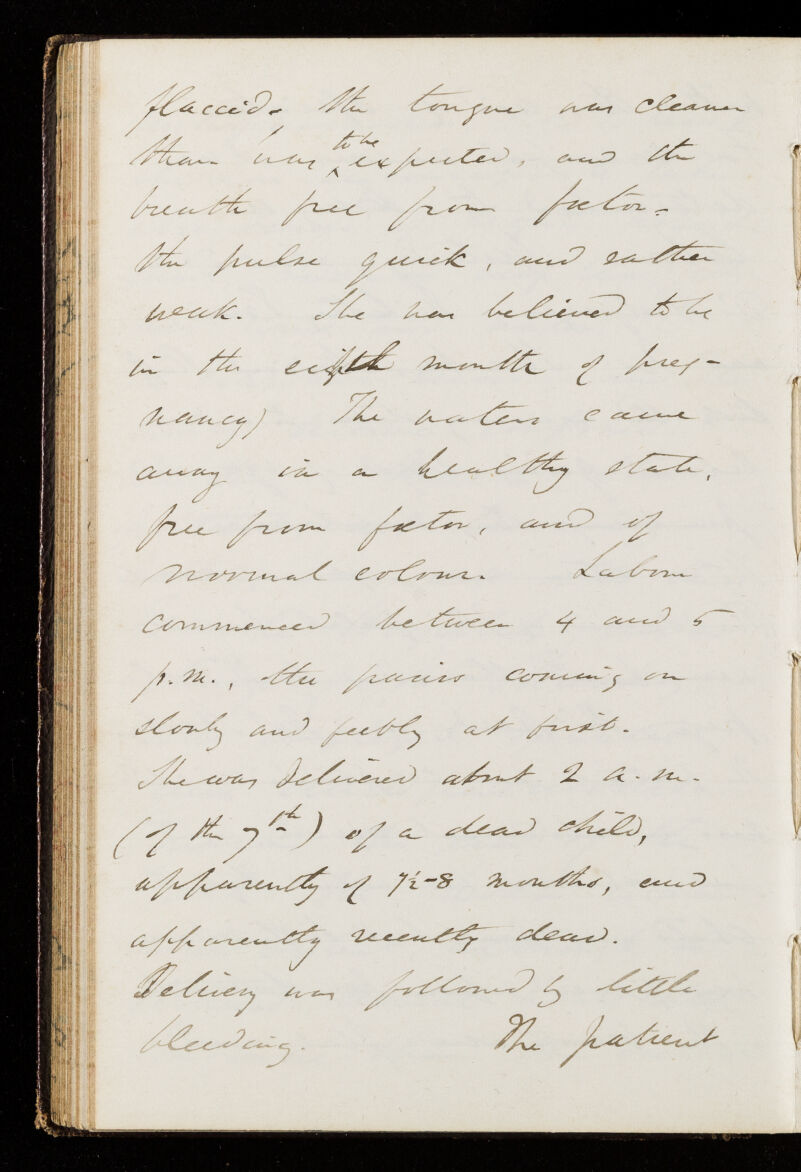 flaccid, the tongue was cleaner
than was to be expected, and the
breath free from fœtor.
The pulse quick, and rather
weak. She was believed to be
in the eighth month of preg-
nancy) The waters came
away in a healthy state,
free from fœtor, and of
normal colour. Labour
commenced between 4 and 5
p.m., the pains coming on
slowly and feebly at first.
She was delivered about 2 a.m.
(of the 7th) of a dead child,
apparently of 7½-8 months, and
apparently recently dead.
Delivery was followed by little
bleeding. The patient